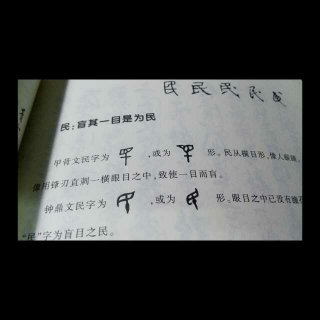 民 民 民 民
民：盲其一目是为民
甲骨文民字为 ，或为 形。民从横目形，像人眼睛，
像用锋刃直刺一横眼目之中，致使一目而盲。
钟鼎文民字为 ，或为 形。眼目之中已没有瞳
“民”字为盲目之民。